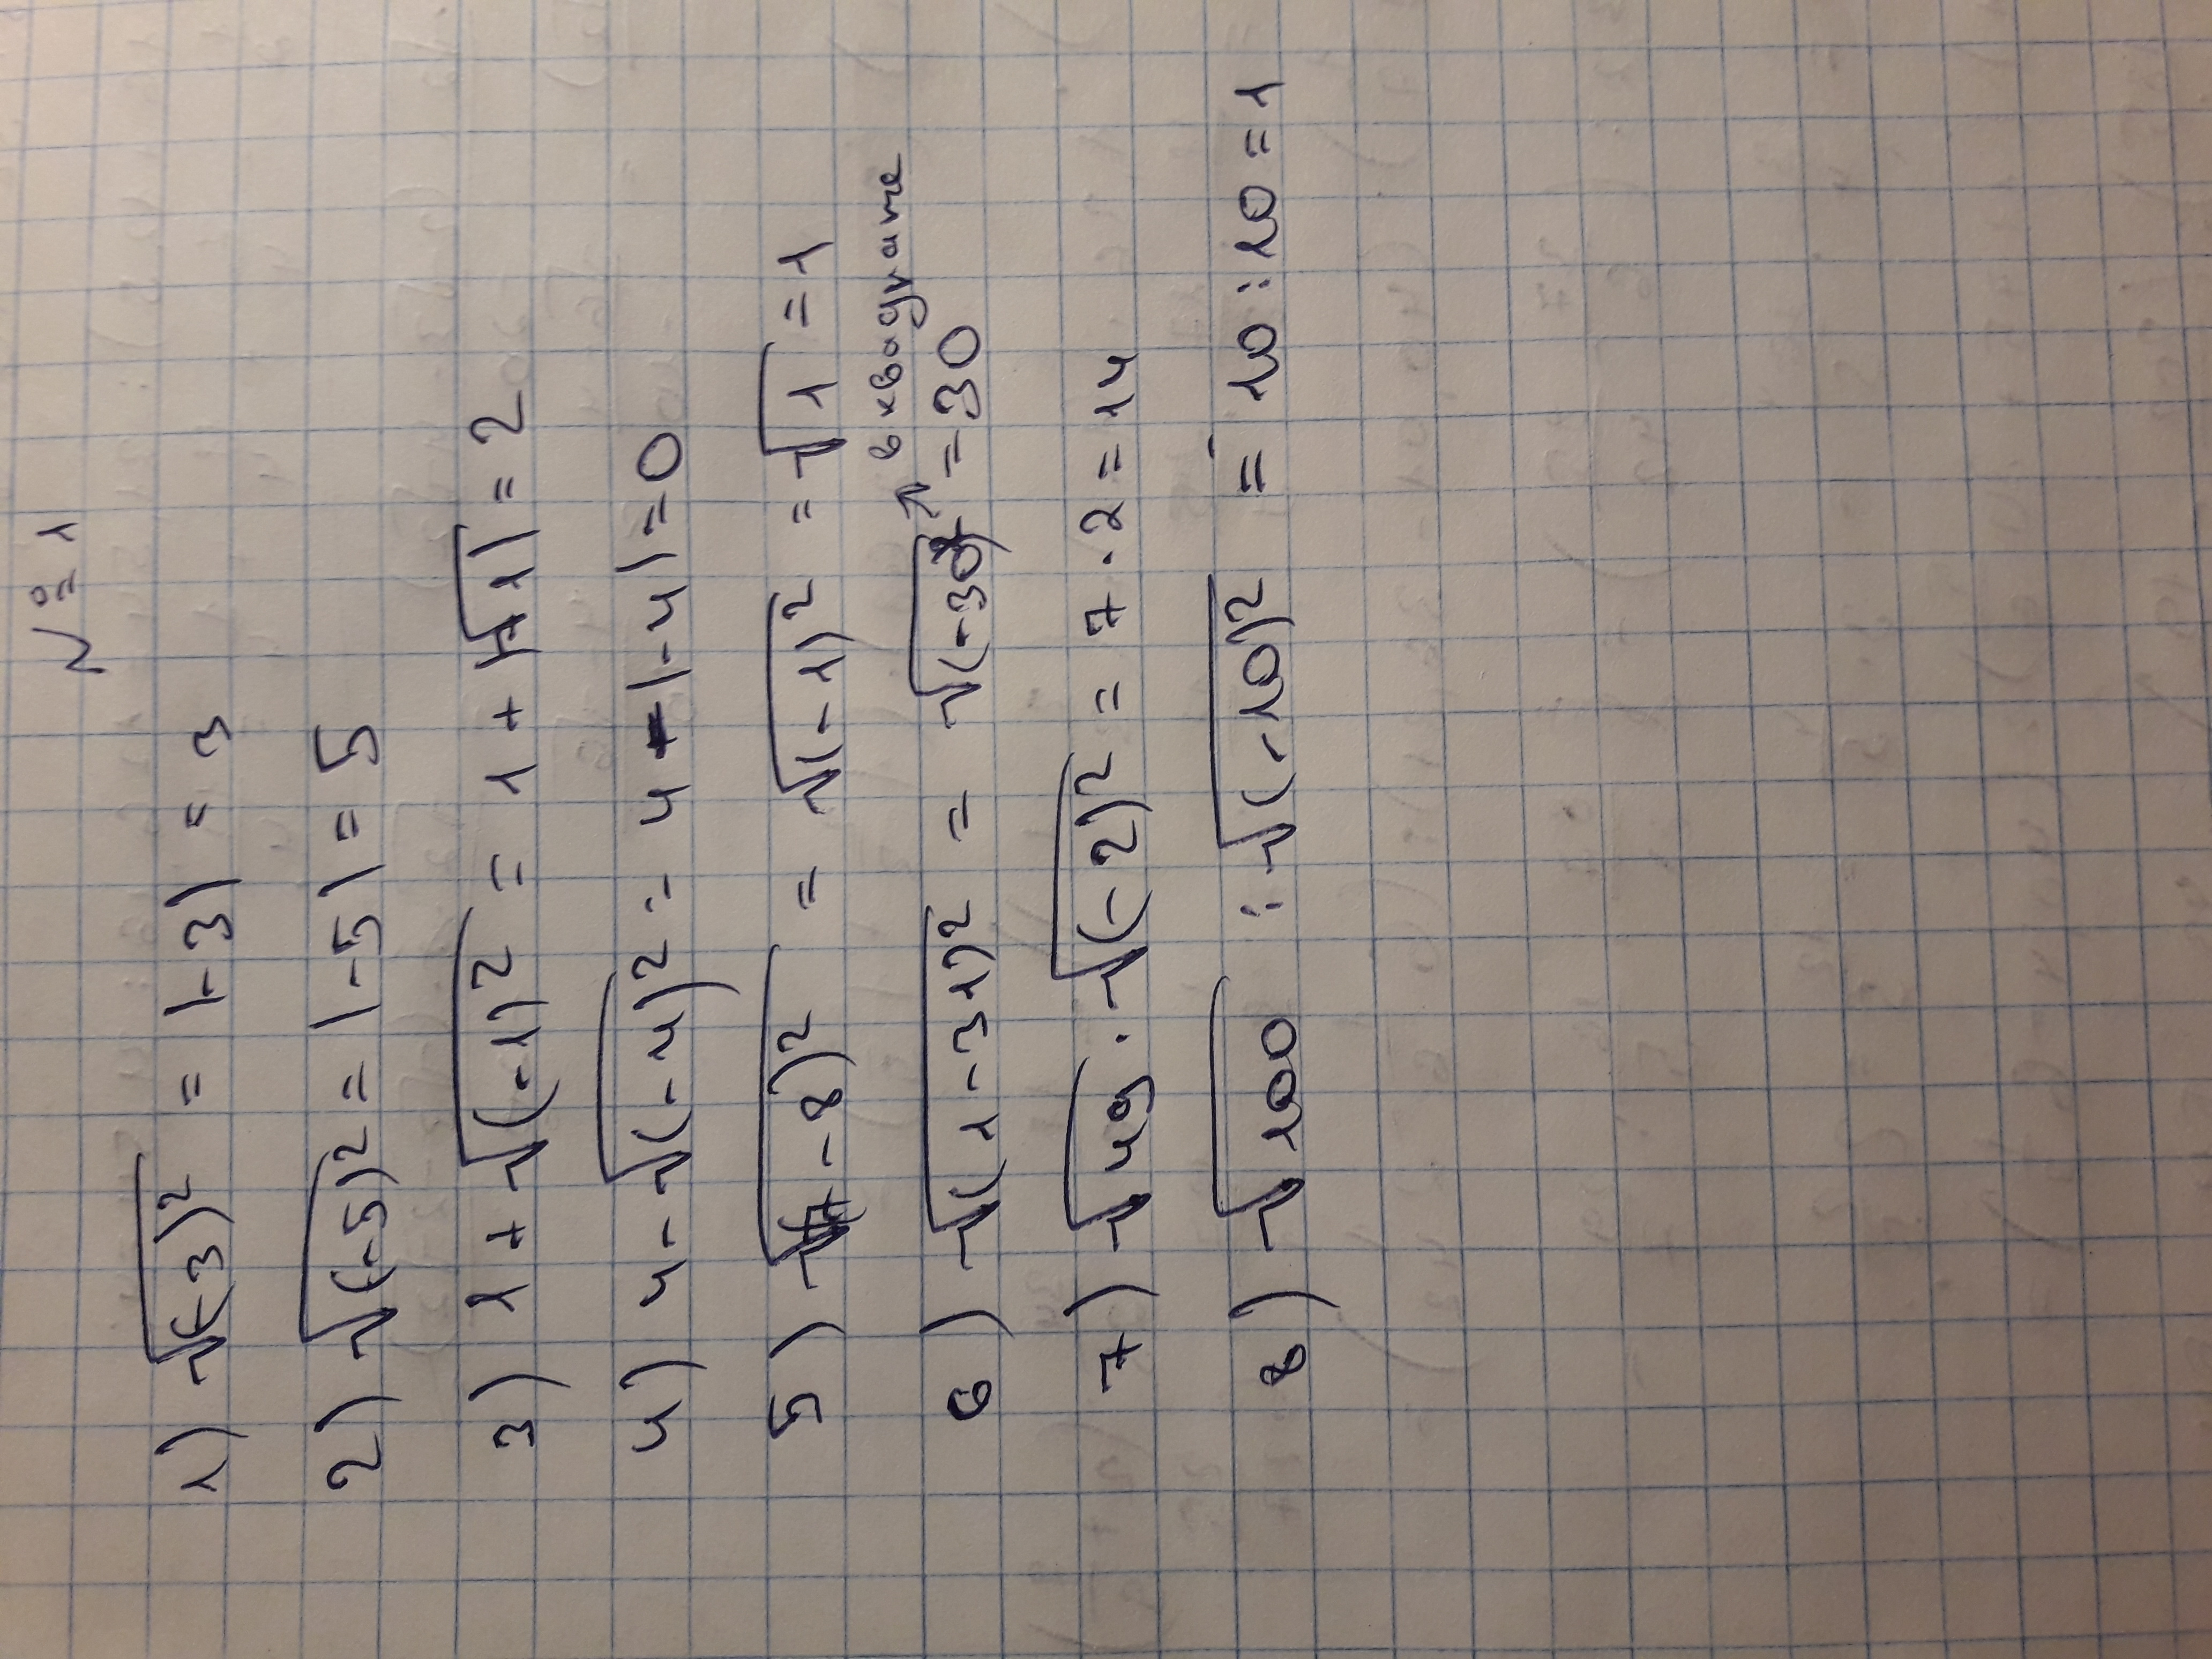 № 1
1) √(-3)² = |-3| = 3
2) √(-5)² = |-5| = 5
3) 1 + √(-1)² = 1 + √|1| = 2
4) 4 - √(-4)² = 4 - |-4| = 0
5) √(7-8)² = √(-1)² = √1 = 1
6) √(1-31)² = √(-30)² → в квадрате = 30
7) √49 · √(-2)² = 7 · 2 = 14
8) √100 : √(-10)² = 10 : 10 = 1